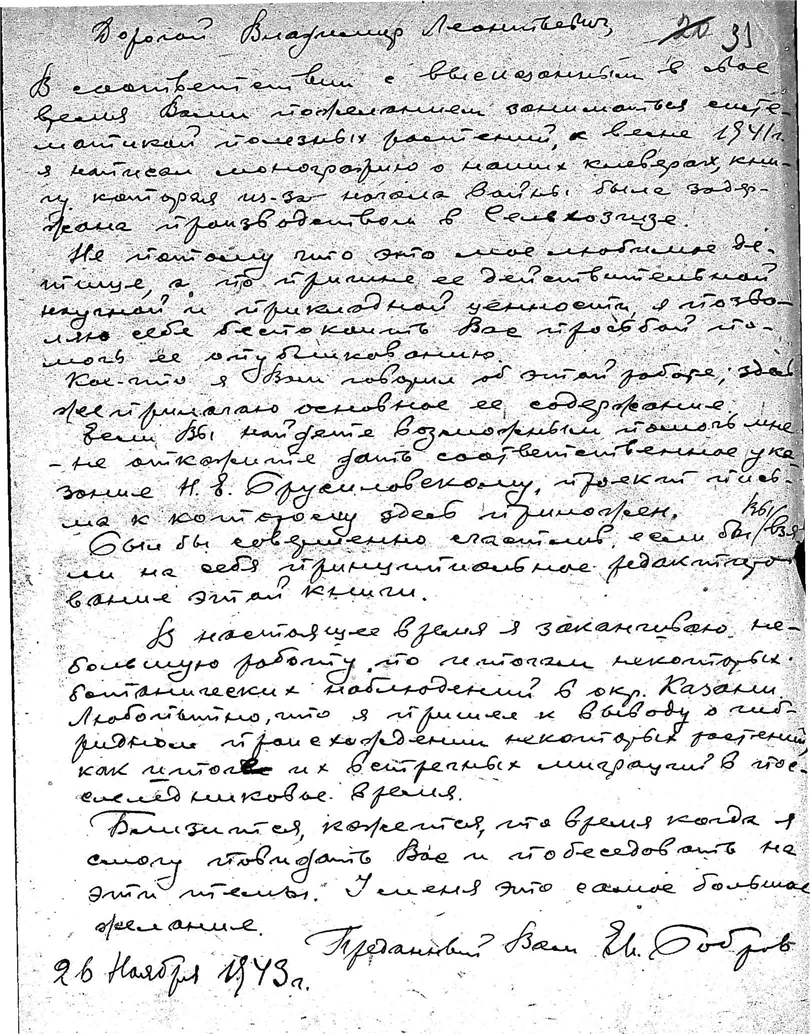 Дорогой Владимир Леонтьевич,
20 31
В соответствии с высказанным в свое
время Вами пожеланием заниматься систе-
матикой полезных растений, к весне 1941 г.
я написал монографию о наших клеверах, кни-
гу, которая из-за начала войны была задер-
жана производством в Сельхозгизе.
Не потому что это мое любимое де-
тище, а по причине ее действительной
научной и прикладной ценности, я позво-
ляю себе беспокоить Вас просьбой по-
мочь ее опубликованию.
Кое-что я Вам говорил об этой работе; здесь
же прилагаю основное ее содержание.
Если Вы найдете возможным помочь мне
- не откажите дать соответственное ука-
зание Н. Е. Брусиловскому, проект пись-
ма к которому здесь приложен.
Был бы совершенно счастлив, если бы Вы взя-
ли на себя принципиальное редактиро-
вание этой книги.
В настоящее время я заканчиваю не-
большую работу по итогам некоторых
ботанических наблюдений в окр. Казани.
Любопытно, что я пришел к выводу о гиб-
ридном происхождении некоторых растений,
как итоге их встречных миграций в пос-
следниковое время.
Близится, кажется, то время когда я
смогу повидать Вас и побеседовать на
эти темы. У меня это самое большое
желание.
Преданный Вам Ев. Бобров
26 Ноября 1943 г.